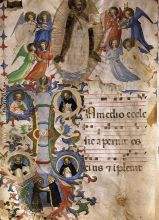 In medio eccle
sie aperuit os
eius et iplevit